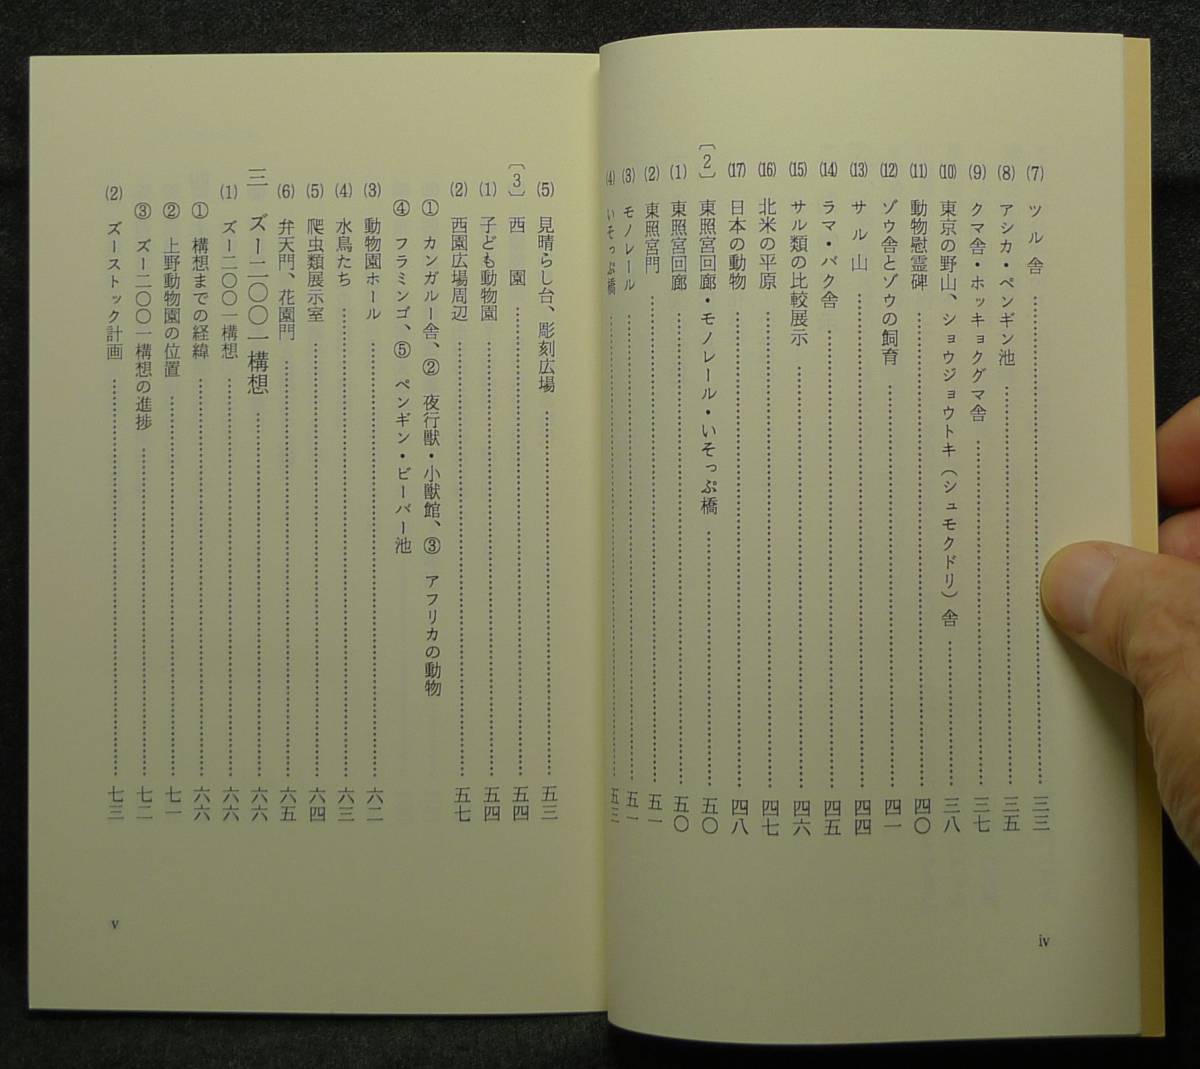 ⑺ ツル舎 三三
⑻ アシカ・ペンギン池 三五
⑼ クマ舎・ホッキョクグマ舎 三七
⑽ 東京の野山、ショウジョウトキ（シュモクドリ）舎 三八
⑾ 動物慰霊碑 四〇
⑿ ゾウ舎とゾウの飼育 四一
⒀ サル山 四四
⒁ ラマ・バク舎 四五
⒂ サル類の比較展示 四六
⒃ 北米の平原 四七
⒄ 日本の動物 四八
〔2〕 東照宮回廊・モノレール・いそっぷ橋 五〇
⑴ 東照宮回廊 五〇
⑵ 東照宮門 五一
⑶ モノレール 五一
⑷ いそっぷ橋 五三
iv
⑸ 見晴らし台、彫刻広場 五三
〔3〕 西園 五四
⑴ 子ども動物園 五四
⑵ 西園広場周辺 五七
① カンガルー舎、② 夜行獣・小獣館、③ アフリカの動物
④ フラミンゴ、⑤ ペンギン・ビーバー池
⑶ 動物園ホール 六二
⑷ 水鳥たち 六三
⑸ 爬虫類展示室 六四
⑹ 弁天門、花園門 六五
三 ズー二〇〇一構想 六六
⑴ ズー二〇〇一構想 六六
① 構想までの経緯 六六
② 上野動物園の位置 七一
③ ズー二〇〇一構想の進捗 七二
⑵ ズーストック計画 七三
v